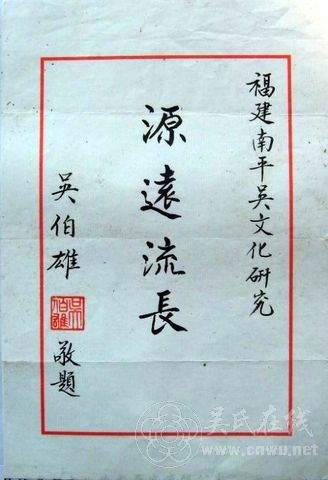 福建南平吳文化研究
源遠流長
吳伯雄
吳伯雄
敬題
吴氏在线
www.cnwu.net